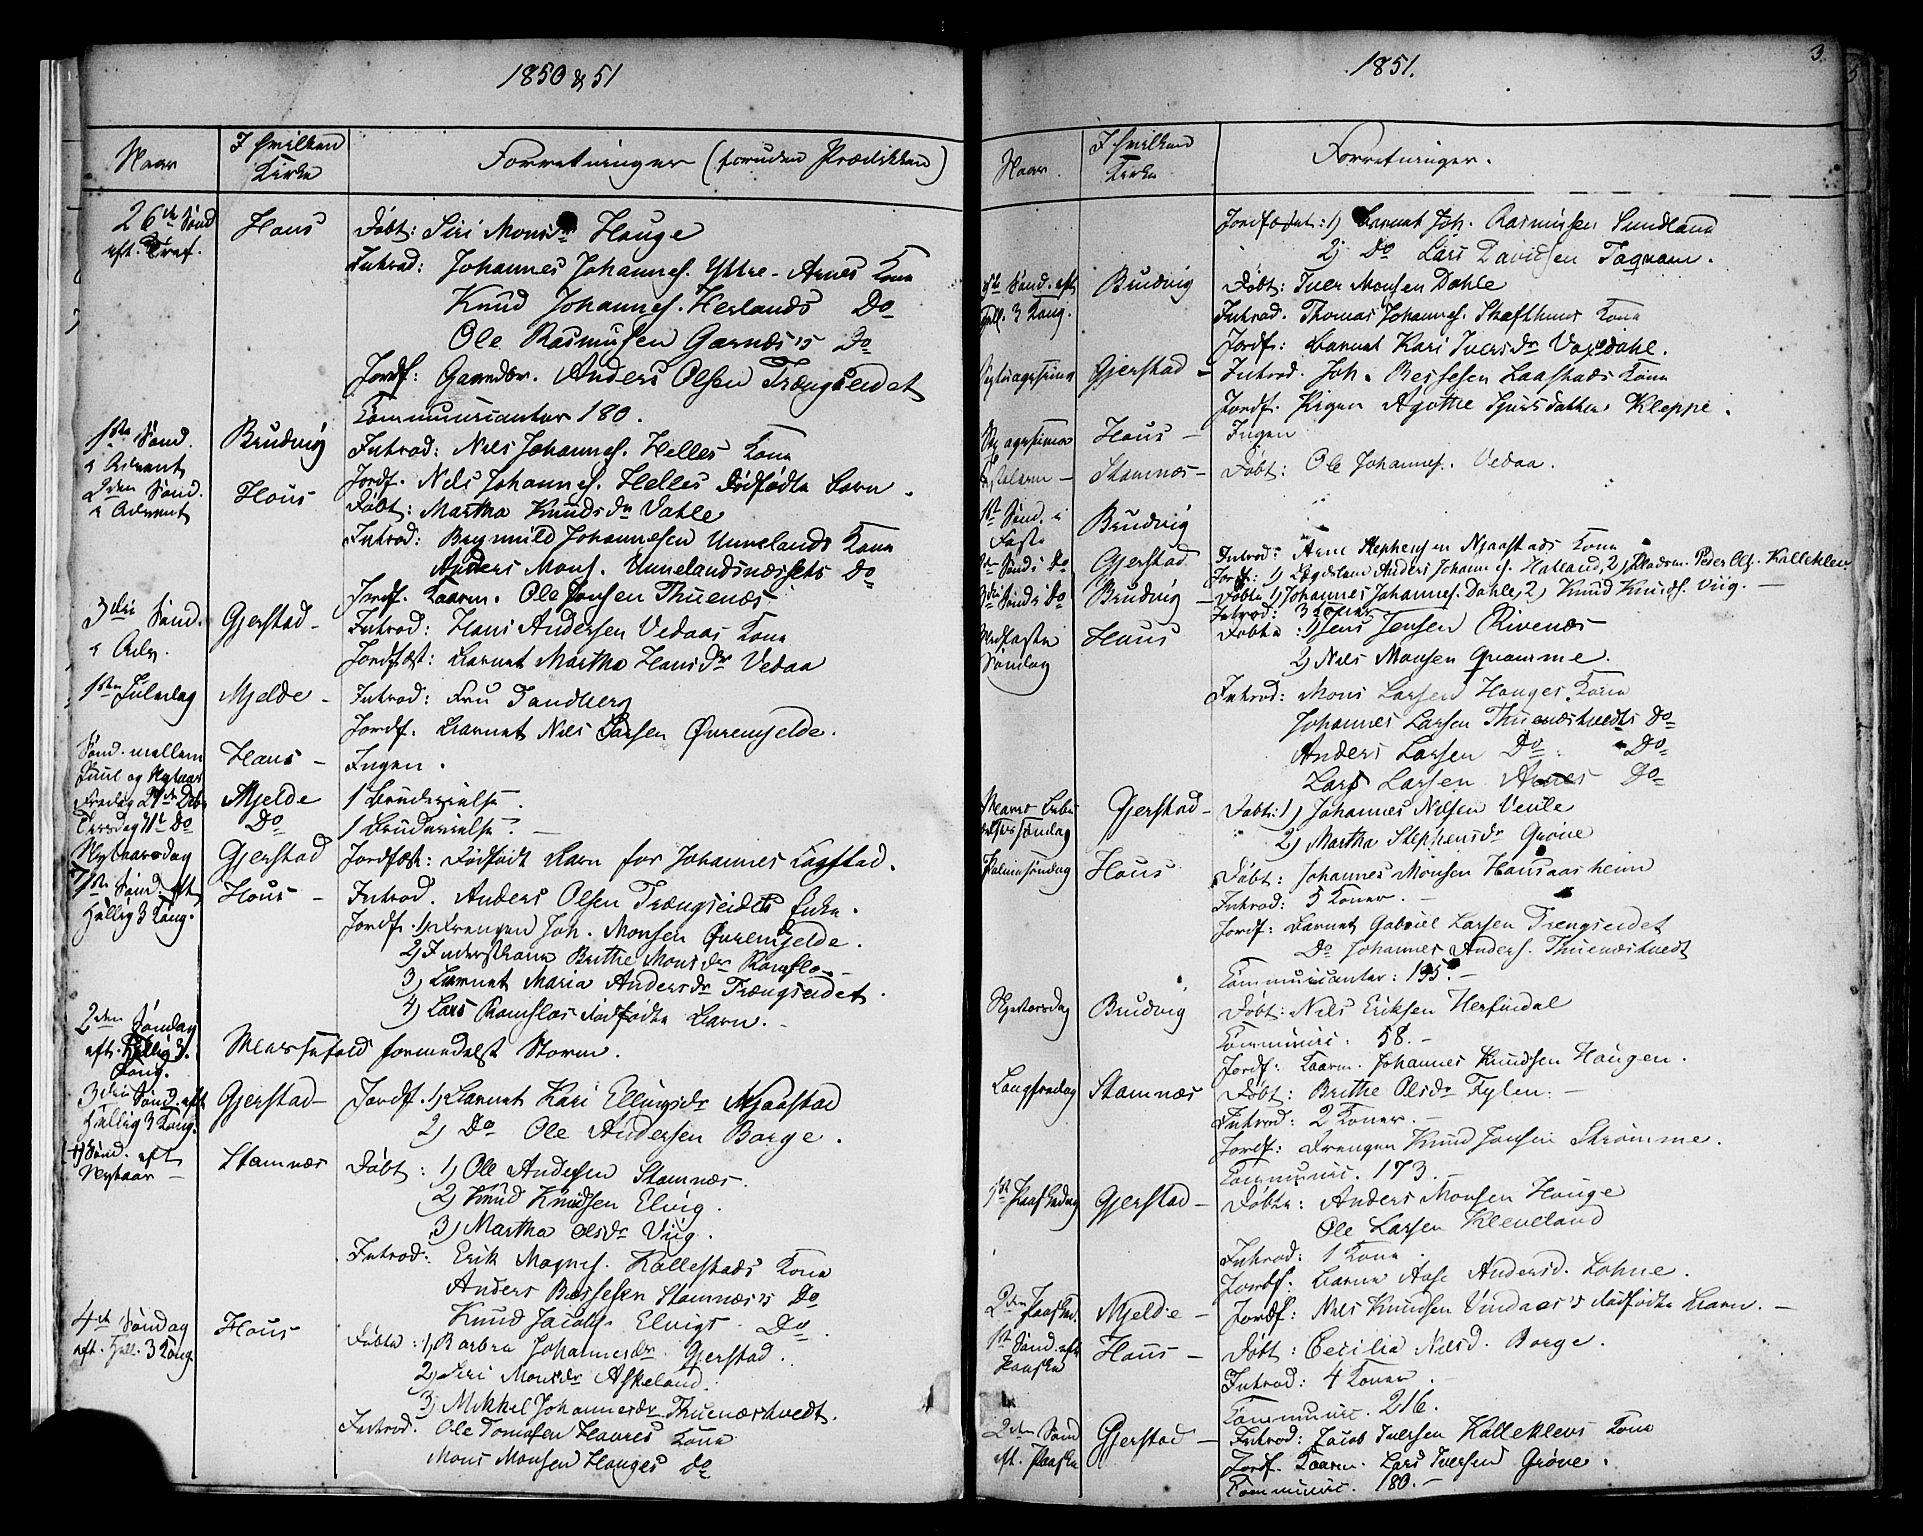 1850 & 51
Naar
I hvilken Kirke
Forretninger (foruden Prædikken)
26de Sønd eft. Tref.
Hous
Døbt: Siri Monsdr Houge
Introd: Johannes Johannes. Yttre-Arnes Kone
Knud Johannes. Herlands Do
Ole Rasmussen Garnæs's Do
Jordf: Gaardbr. Anders Olsen Trængseidet
Communicanter 180.
1ste Sønd. i Advent
Brudvig
Introd: Nils Johannes. Helles Kone
Jordf. Nils Johannes. Helles dødfødte Barn.
2den Sønd. i Advent
Hous
Døbt: Martha Knudsdr Vahle
Introd: Brynnild Johannesen Unnelands Kone
Anders Mons. Unnelandsnæssets Do
Jordf. Kaarm. Ole Jonsen Thuenæs
3die Sønd. i Adv.
Gjerstad -
Introd: Hans Andersen Vedaas Kone
Jordfæst: Barnet Martha Hansdr Vedaa
1ste Juledag
Mjelde -
Introd: Fru Sandberg
Jordf. Barnet Nils Larsen Øvremjelde.
Sønd. mellem Juul og Nytaar
Hous -
Ingen.
Fredag 27de Decbr
Mjelde
1 Brudevielse.
Tirsdag 31te Do
Do
1 Brudevielse. -
Nytaarsdag
Gjerstad
Jordfæst: Dødfødt Barn for Johannes Togstad.
1ste Sønd. eft Hellig 3 Kong.
Hous -
Introd. Anders Olsen Trængseidets Enke.
Jordf. 1) Drengen Joh. Monsen Øvremjelde.
2) Inderstkone Brithe Monsdr Romslo -
3) Barnet Maria Andersdr Trængseidet.
4) Lars Romslos dødfødte Barn. -
2den Søndag eft. Hellig 3. Kong.
Messefald formedelst Storm.
3die Sønd. eft Hellig 3 Kong.
Gjerstad -
Jordf. 1) Barnet Kari Ellingsdr Mjaastad
2) Do Ole Andersen Borge.
Sønd. eft Nytaar -
Stamnæs
Døbt: 1) Ole Andersen Stamnæs.
2) Knud Knudsen Elvig.
3) Martha Olsdr Viig.
Introd: Erik Magnes. Kallestads Kone
Anders Bessesen Stamnæs's Do
Knud Jacobs. Elvigs. Do.
4de Søndag eft. Hell. 3 Kong.
Hous
Døbte: 1) Barbra Johannesdr Gjerstad.
2) Siri Monsdr Askeland.
3) Mikkel Johannesdr Thuenæstvedt.
Introd. Ole Tomasen Hannes Kone
Mons Monsen Houges Do
1851.
3
Naar.
I hvilken Kirke
Forretninger.
Jordfæstet: 1) Barnet Joh. Rasmussen Sundland
2) Do Lars Davidsen Fagnam.
5te Sønd. eft Hell. 3 Kong.
Brudvig
Døbt: Iver Monsen Dahle
Introd. Thomas Johannes. Skafthuns Kone
Jordf: Barnet Kari Iversdr Vaxdahl.
Gjerstad -
Introd. Joh. Bessesen Laastads Kone
Jordf. Pigen Agothe Sjursdatter Kleppe.
Hous -
Ingen
Stamnæs -
Døbt: Ole Johannes. Vedaa.
1ste Sønd. i Faste
Brudvig
2den Sønd. i Do
Gjerstad
Introd: Arne Stephensen Mjaastads Kone
Jordf: 1) Anders Johannes. Hatland, 2) Peder Ols. Kalleklev
3die Sønd. i Do
Brudvig -
Døbte 1) Johannes Johannes. Dahle, 2) Knud Knuds. Viig. -
Introd: 3 Koner
Midfaste Søndag
Hous
Døbte: 1) Jens Jensen Rivenæs
2) Nils Monsen Qvamme.
Introd: Mons Larsen Houges Kone
Johannes Larsen Thuenæstvedts Do
Anders Larsen Do. Do
Lars Larsen Arnes Do
Mariæ Bebudelses søndag
Gjerstad -
Døbt: 1) Johannes Nilsen Vevle
2) Martha Stephensdr Grøne
Palmesøndag
Hous
Døbt: Johannes Monsen Hansaasheim
Introd: 5 Koner. -
Jordf: Barnet Gabriel Larsen Trengseidet
Do Johannes Anders. Thuenæstvedt
Communicanter: 195. -
Skjertorsdag
Brudvig
Døbt: Nils Eriksen Herfindal
Communic: 58. -
Jordf: Kaarm. Johannes Knudsen Haugen.
Langfredag
Stamnæs
Døbt: Brithe Olsdr Fylen. -
Introd: 2 Koner. -
Jordf: Drengen Knud Jonsen Strømme.
Communic. 173. -
1ste Paaskedag
Gjerstad -
Døbte: Anders Monsen Houge
Ole Larsen Kleveland
Introd: 1 Kone
Jordf: Barne Aase Andersd. Lohne.
2den Paasked.
Mjelde -
Jordf: Nils Knudsen Vindaas's dødfødte Barn. -
1ste Sønd. eft Paaske
Hous -
Døbt: Cecilia Nilsd. Borge.
Introd: 4 Koner.
Communic. 216.
2den Sønd eft. Paaske
Gjerstad -
Introd: Jacob Iversen Kalleklevs Kone
Jordf. Kaarm. Lars Iversen Grøne.
Communic. 180. -